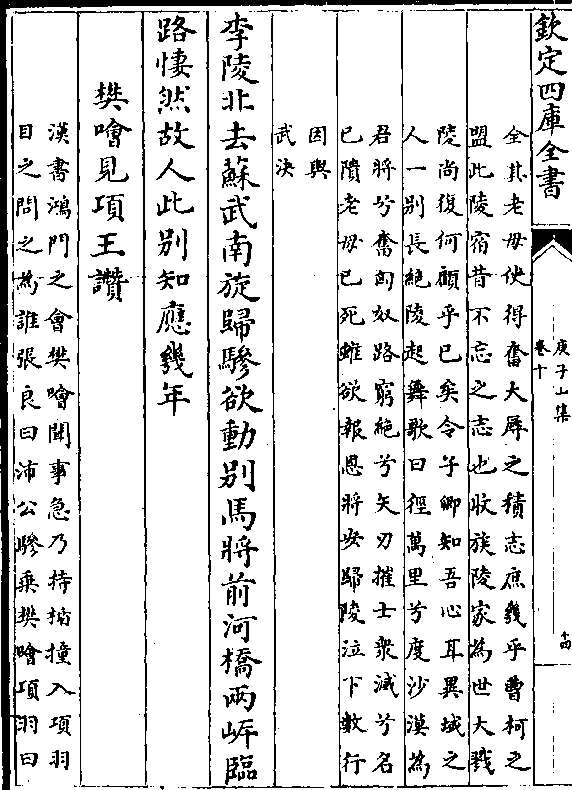 欽定四庫全書
庾子山集
卷十
十四
全其老母使得奮大辱之積志庶幾乎曹柯之
盟此陵宿昔不忘之志也收族陵家為世大戮
陵尚復何顧乎已矣令子卿知吾心耳異域之
人一别長絶陵起舞歌曰徑萬里兮度沙漠為
君將兮奮匈奴路窮絶兮矢刃摧士衆滅兮名
已隤老母已死雖欲報恩將安歸陵泣下數行
因與
武決
李陵北去蘇武南旋歸驂欲動别馬將前河橋兩岍臨
路悽然故人此别知應幾年
樊噲見項王讚
漢書鴻門之會樊噲聞事急乃持楯撞入項羽
目之問之為誰張良曰沛公驂乗樊噲項羽曰